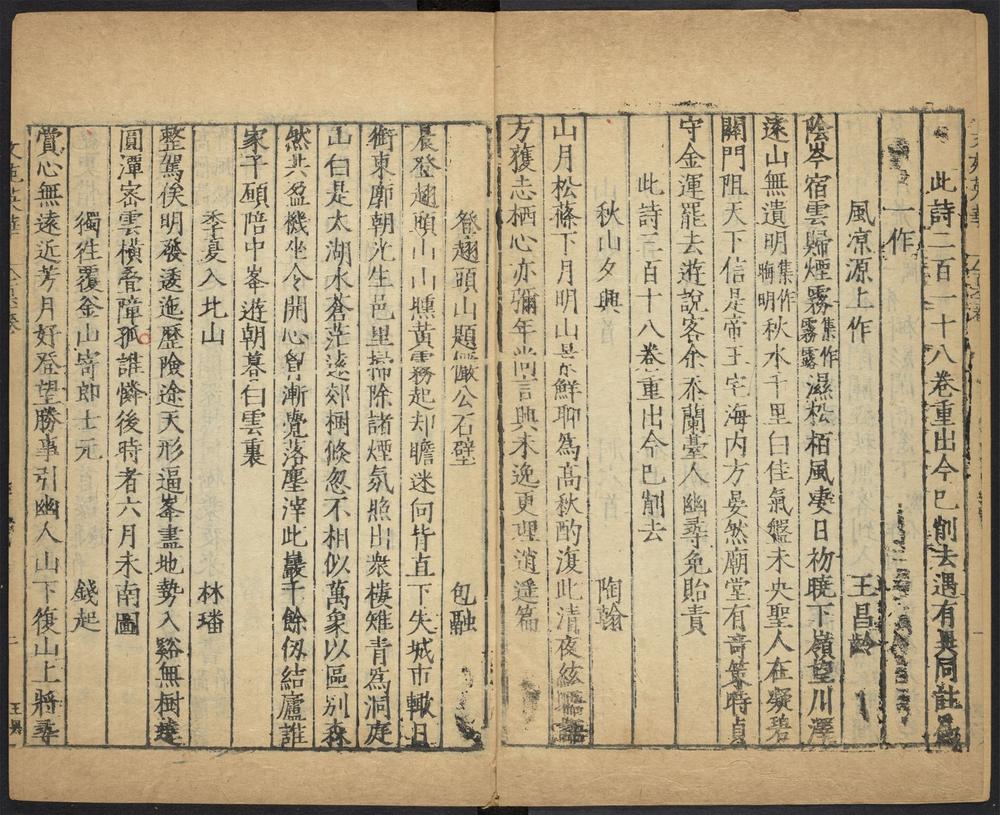 此詩二百一十八卷重出今已削去遇有異同註爲
一作
風凉源上作 王昌齡
陰岑宿雲歸煙霧集作霧露濕松栢風凄日初曉下嶺望川澤
遠山無遺明集作晦明秋水千里白佳氣盤未央聖人在凝碧
關門阻天下信是帝王宅海内方晏然廟堂有奇策時貞
守金運罷去遊說客余忝蘭臺人幽尋免貽責
此詩三百十八卷重出今已削去
秋山夕興 陶翰
山月松篠下月明山景鮮聊爲高秋酌復此清夜絃晤語
方獲志栖心亦彌年尚言興未逸更理逍遥篇
登趙頭山題儼公石壁 包融
晨登趙頭山山曛黄霧起却瞻迷向皆直下失城市暾日
銜東廓朝光生邑里掃除諸煙氛照出衆樓雉青爲洞庭
山白是太湖水蒼茫遠郊樹倐忽不相似萬象以區别森
然共盈機坐令開心智漸覺落塵滓此巖千餘仞結廬誰
家子願陪中峯遊朝暮白雲裏
季夏入北山 林璠
整駕俟明發逶迤歷險途天形逼峯盡地勢入谿無樹遶
圓潭密雲横疊障孤誰憐後時者六月未南圖
獨往覆釜山寄郎士元 錢起
賞心無遠近芳月好登望勝事引幽人山下復山上將尋